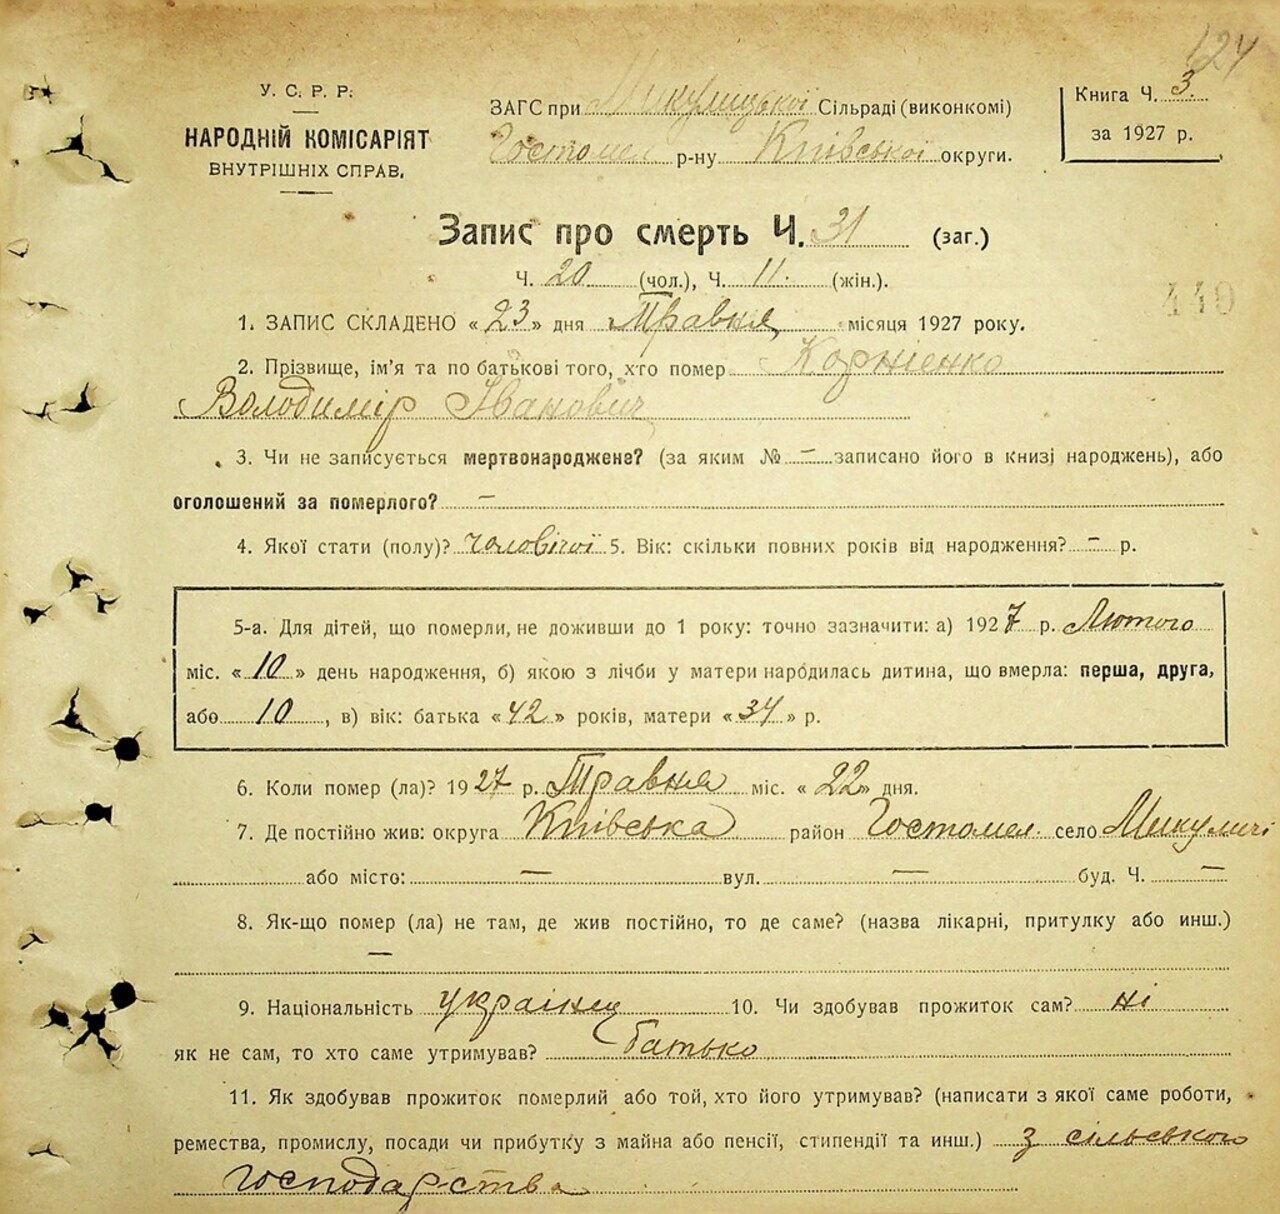 124
У. С. Р. Р.
НАРОДНІЙ КОМІСАРІЯТ
ВНУТРІШНІХ СПРАВ.
ЗАГС при Микулицької Сільраді (виконкомі)
Гостомел р-ну Київської округи.
Книга Ч. 3.
за 1927 р.
Запис про смерть Ч. 31 (заг.)
Ч. 20 (чол.), Ч. 11. (жін.).
440
1. ЗАПИС СКЛАДЕНО «23» дня Травня місяця 1927 року.
2. Прізвище, ім'я та по батькові того, хто помер Корнієнко
Володимір Іванович
3. Чи не записується мертвонароджене? (за яким № – записано його в книзі народжень), або
оголошений за померлого? –
4. Якої стати (полу)? чоловічої 5. Вік: скільки повних років від народження? – р.
5-а. Для дітей, що померли, не доживши до 1 року: точно зазначити: а) 1927 р. Лютого
міс. «10» день народження, б) якою з лічби у матери народилась дитина, що вмерла: перша, друга,
або 10, в) вік: батька «42» років, матери «34» р.
6. Коли помер (ла)? 1927 р. Травня міс. «22» дня.
7. Де постійно жив: округа Київська район Гостомел. село Микуличі
або місто: – вул. – буд. Ч. –
8. Як-що помер (ла) не там, де жив постійно, то де саме? (назва лікарні, притулку або инш.)
–
9. Національність українец 10. Чи здобував прожиток сам? ні
як не сам, то хто саме утримував? батько
11. Як здобував прожиток померлий або той, хто його утримував? (написати з якої саме роботи,
ремества, промислу, посади чи прибутку з майна або пенсії, стипендії та инш.) з сільського
господарства